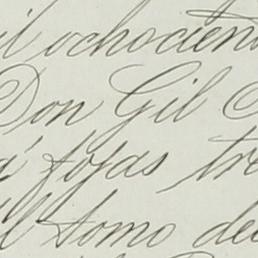 il ochocient
Don Gil
á fojas tre
l tomo de